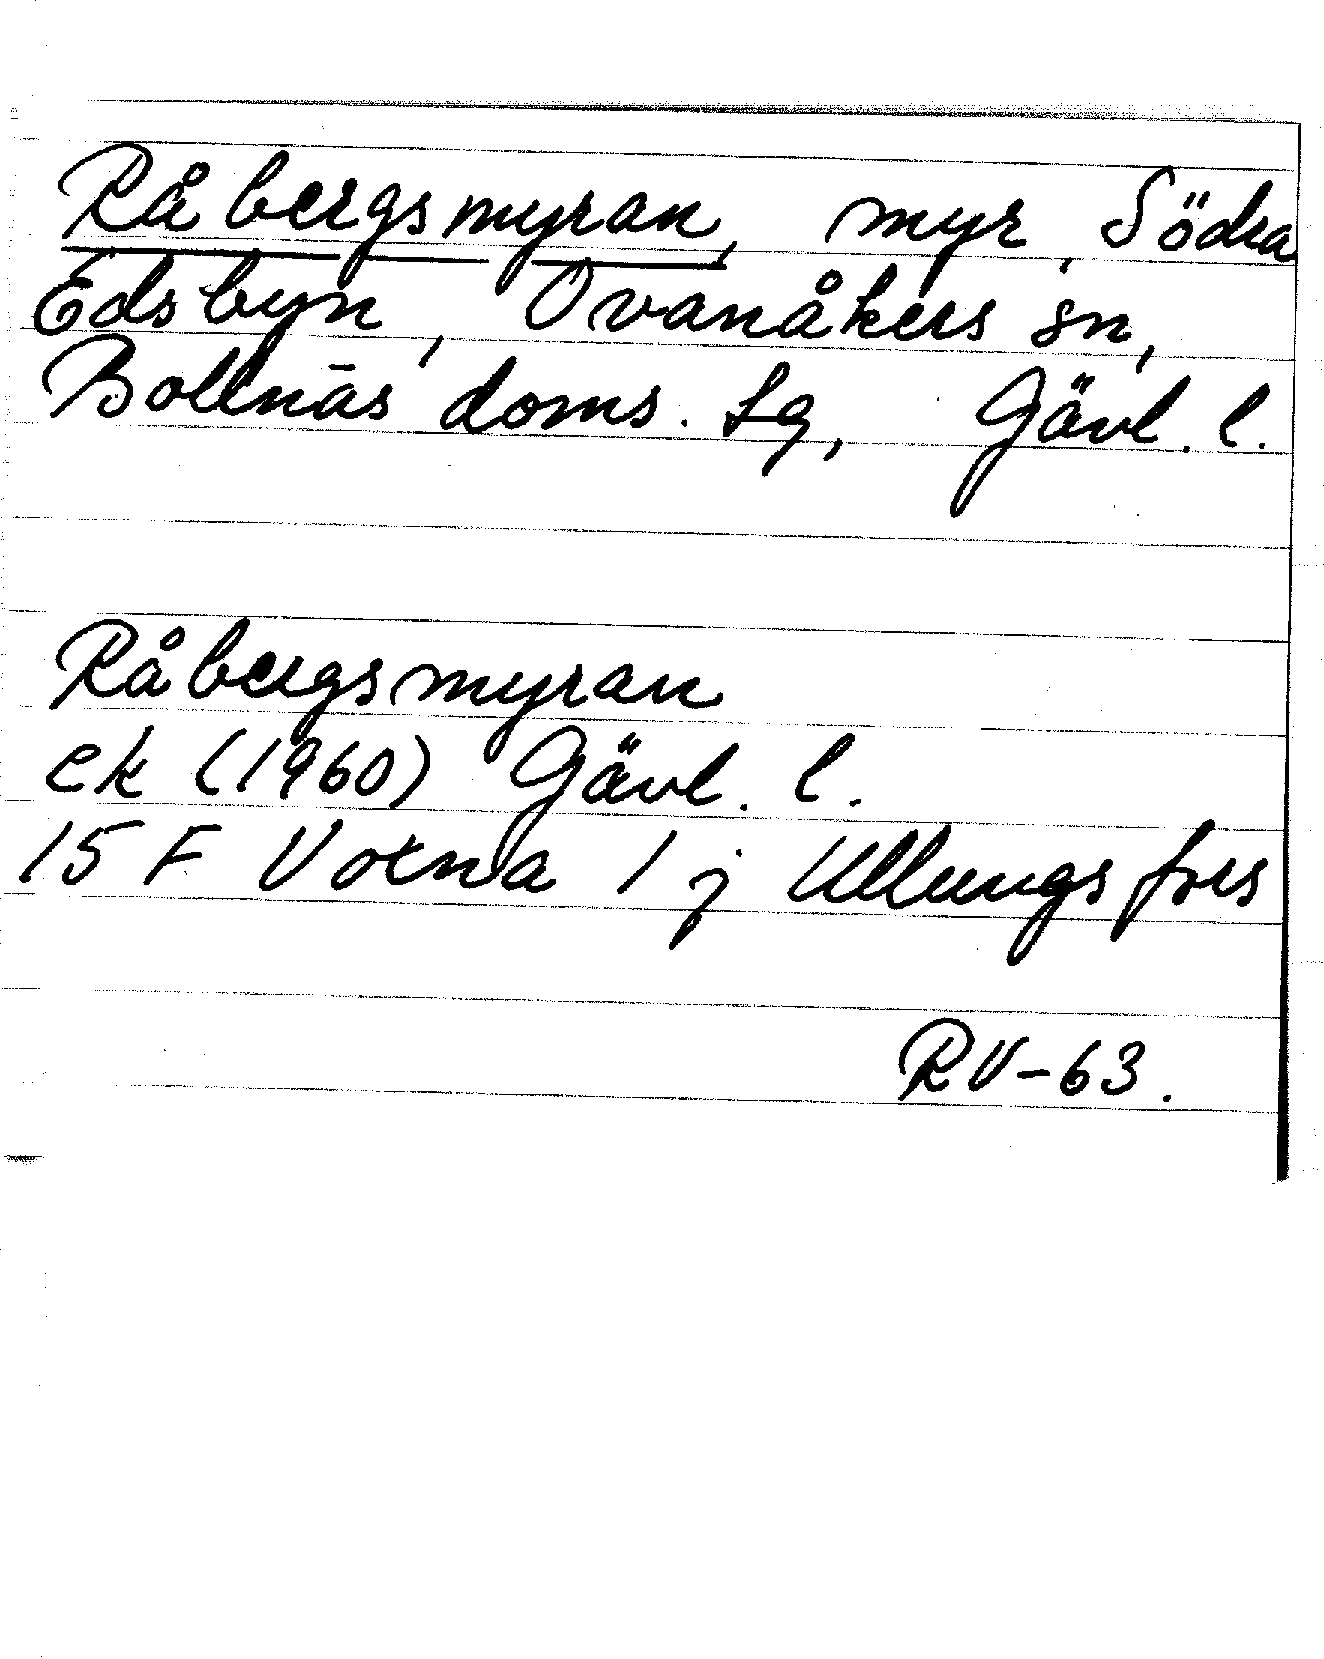 Råbergsmyran, myr, Södra
Edsbyn, Ovanåkers sn,
Bollnäs doms. sg, Gävl. l.
Råbergsmyran
ek (1960) Gävl. l.
15 F Voxna 1 j Ullungsfors
RV-63.